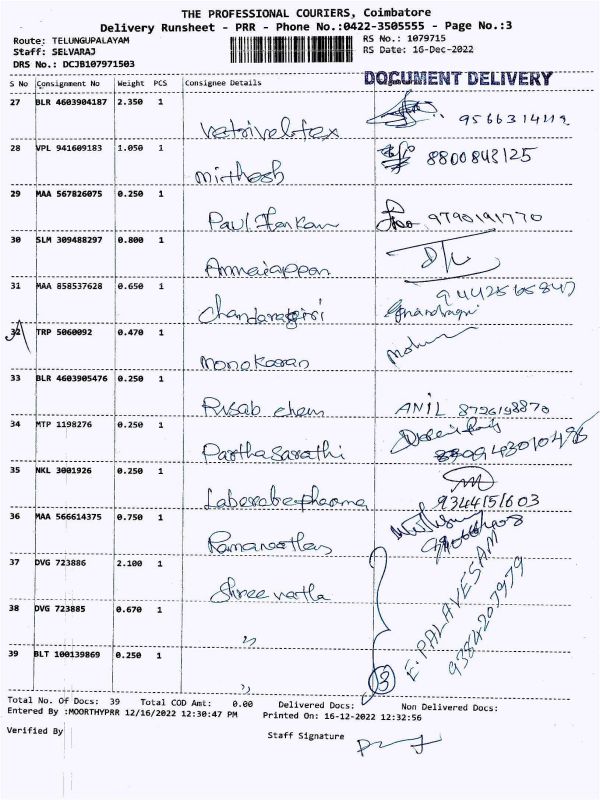 THE PROFESSIONAL COURIERS, Coimbatore
Delivery Runsheet - PRR - Phone No.:0422-3505555 - Page No.:3
Route: TELUNGUPALAYAM RS No.: 1079715
Staff: SELVARAJ RS Date: 16-Dec-2022
DRS No.: DCJB107971503
DOCUMENT DELIVERY
S No Consignment No Weight PCS Consignee Details
27 BLR 4603904187 2.350 1
Vetrivel tex 9566314119
28 VPL 941609183 1.050 1
Mirthesh 8800848125
29 MAA 567826075 0.250 1
Paul 9790191770
30 SLM 309488297 0.800 1
Annaiappan
31 MAA 858537628 0.650 1
Chandaragiri 9442565847
32 TRP 5060092 0.470 1
Monokaran
33 BLR 4603905476 0.250 1
Risab cham ANIL 8726198870
34 MTP 1198276 0.250 1
Parthasarathi 9443010496
35 NKL 3001926 0.250 1
Laberabepharma 9344151603
36 MAA 566614375 0.750 1
Ramanathan
37 DVG 723886 2.100 1
Shree vatla
38 DVG 723885 0.670 1
,,
39 BLT 100139869 0.250 1
,,
3 E. PALAVESAM
9384207979
Total No. Of Docs: 39 Total COD Amt: 0.00 Delivered Docs: Non Delivered Docs:
Entered By :MOORTHYPRR 12/16/2022 12:30:47 PM Printed On: 16-12-2022 12:32:56
Verified By Staff Signature